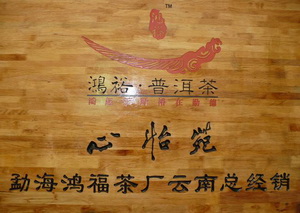 TM
鸿裕·普洱茶
心怡苑
勐海鸿福茶厂云南总经销